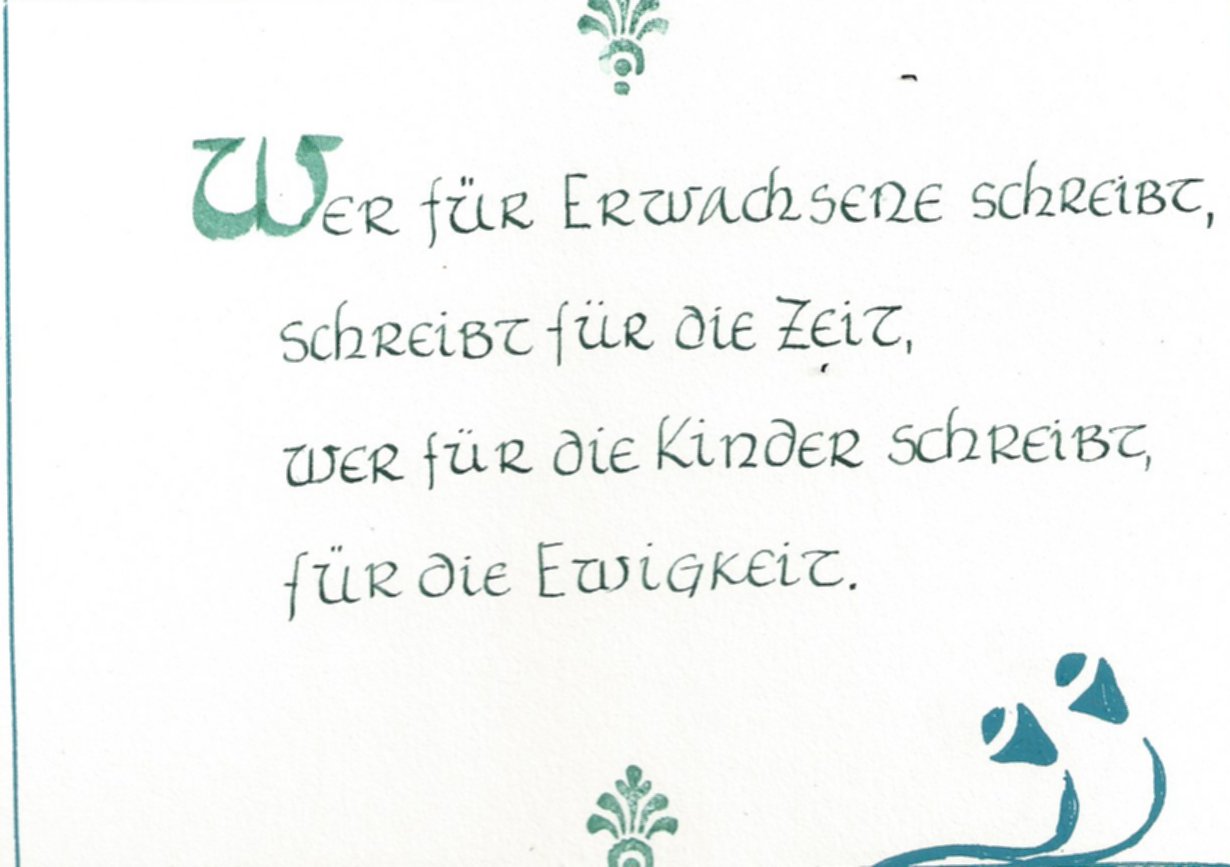 Wer für Erwachsene schreibt,
schreibt für die Zeit,
wer für die Kinder schreibt,
für die Ewigkeit.